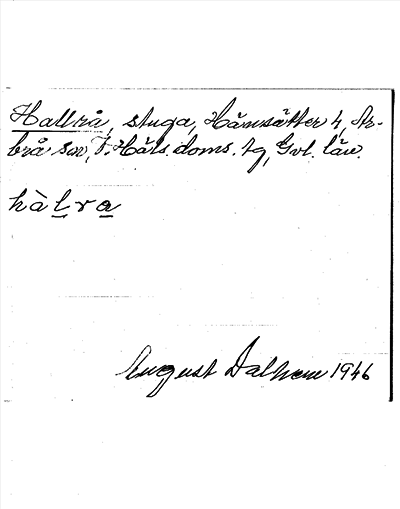 Hallrå, stuga, Hånsätter 4, Ar-
brå sn, V. Häls. doms. tg, Gvl. län.
hàl̲ra̲
August Dalhem 1946